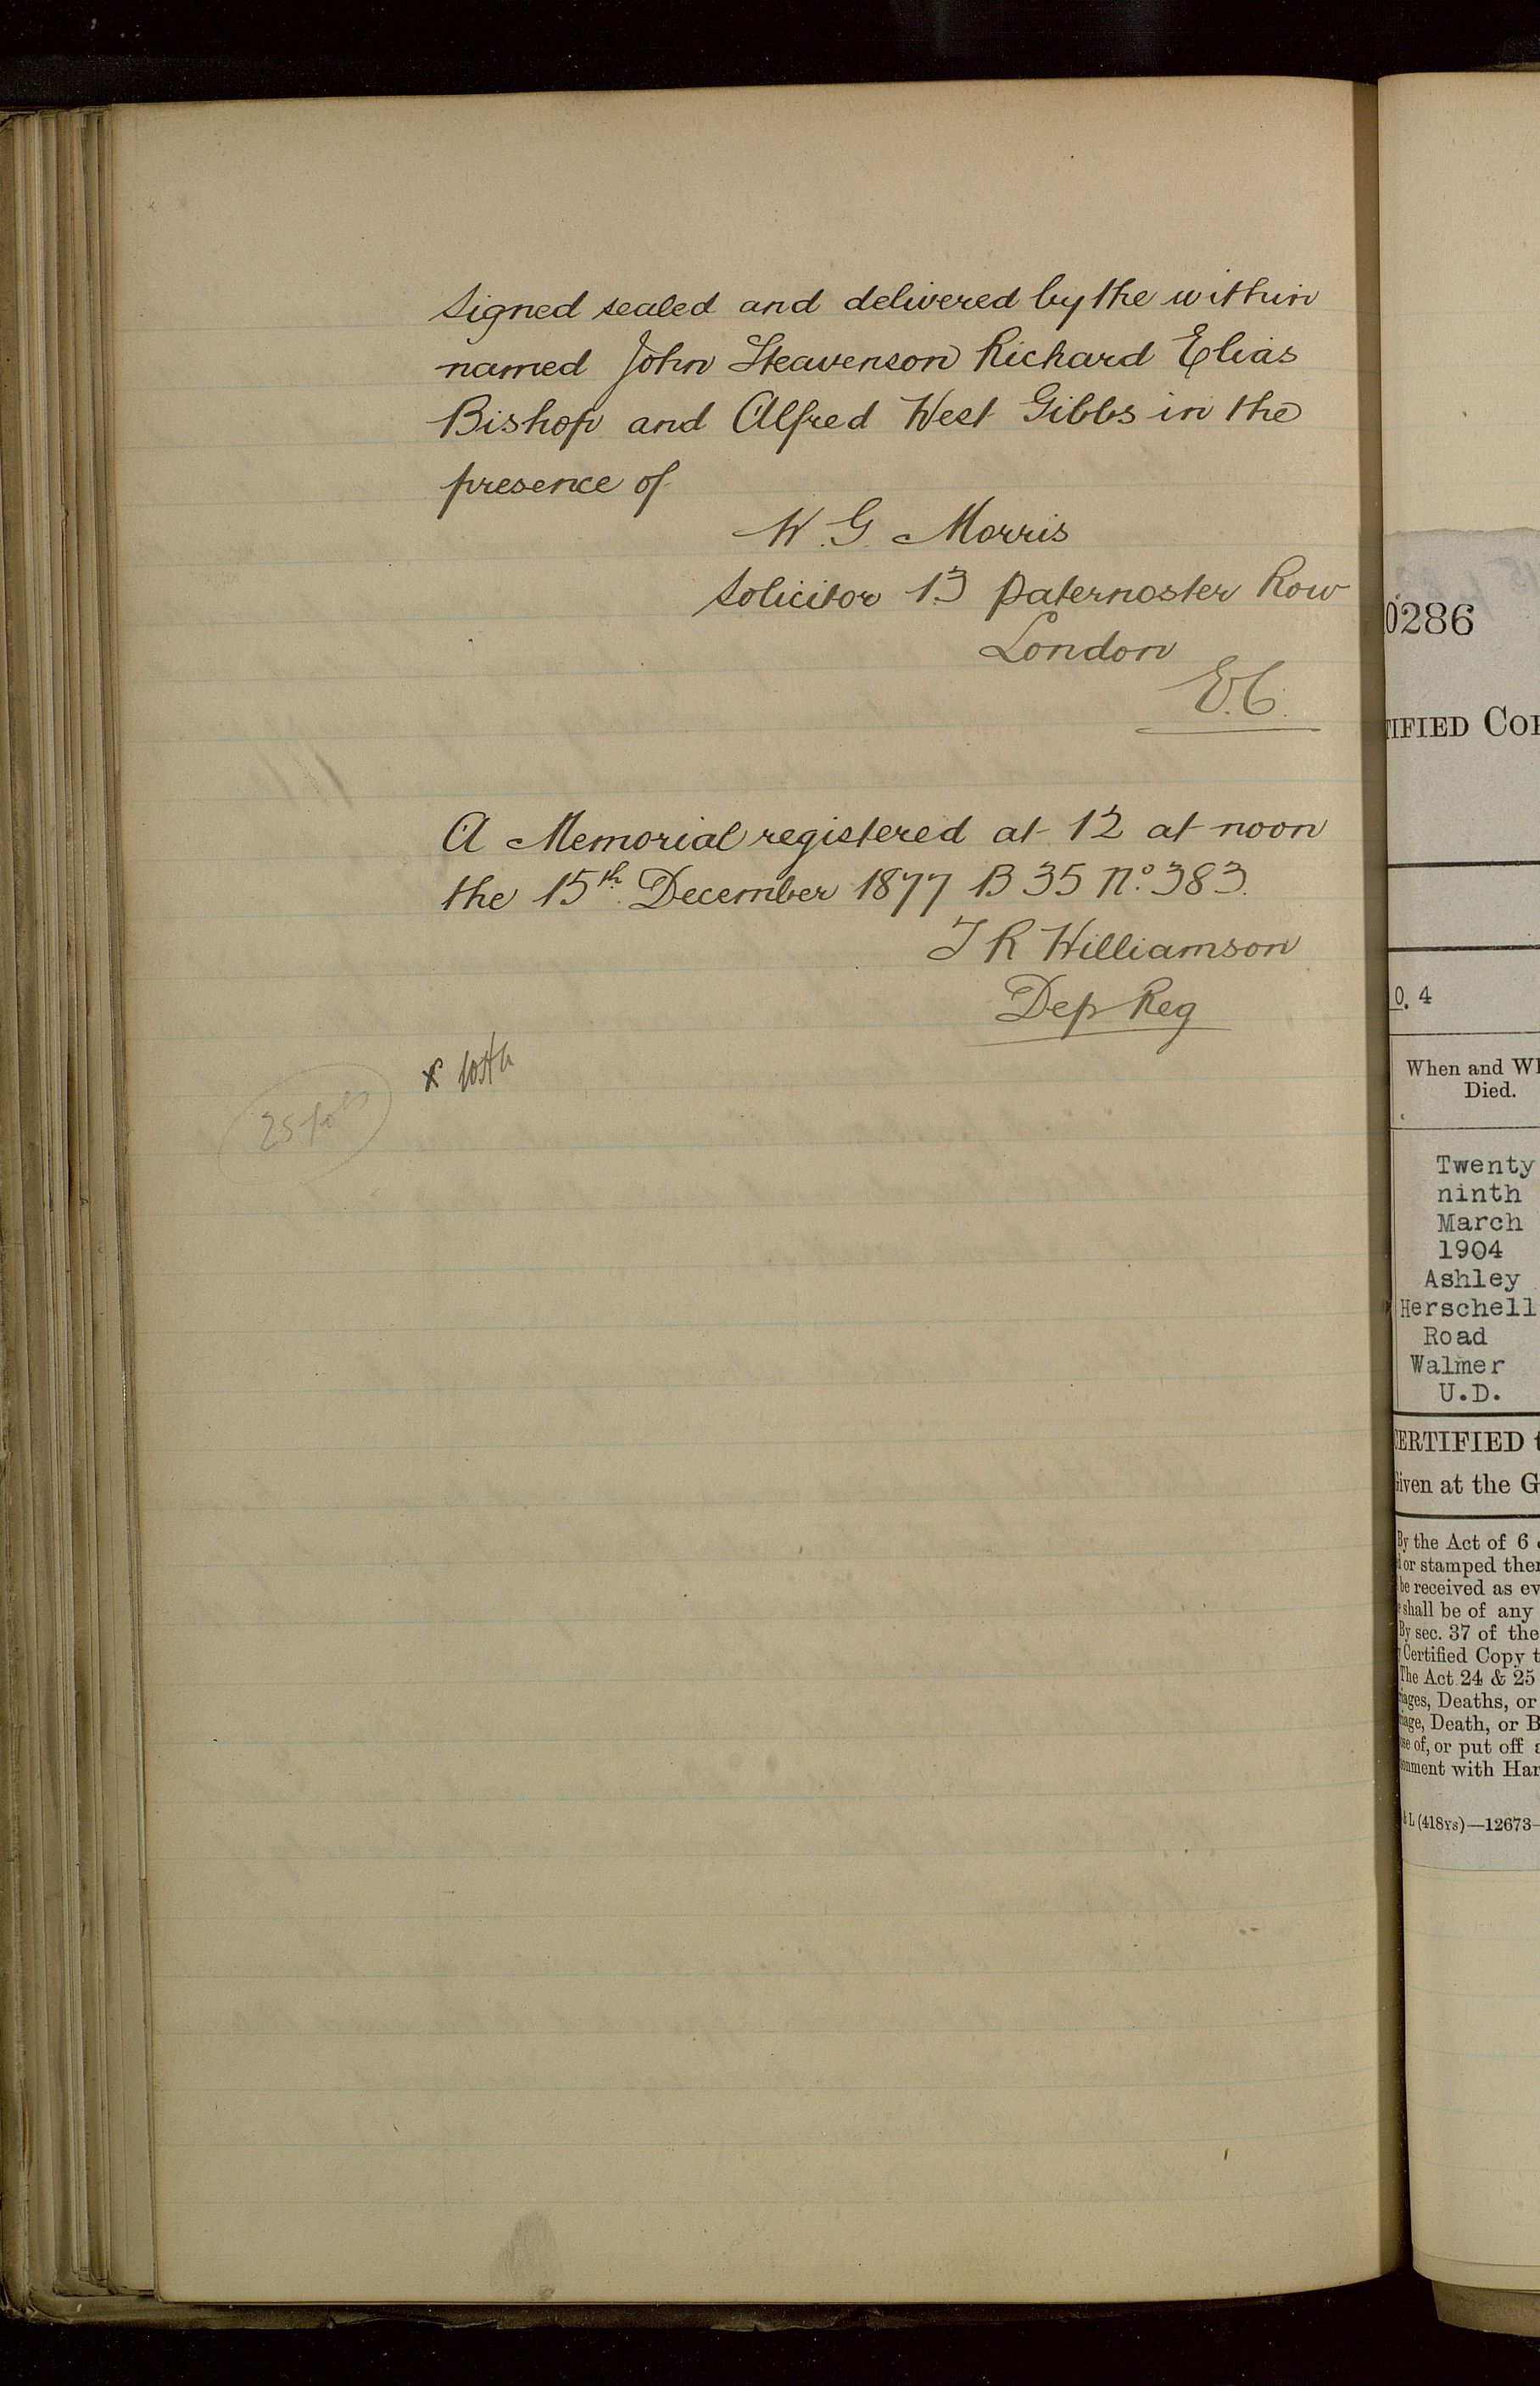 Signed sealed and delivered by the within
named John Steavenson Richard Elias
Bishop and Alfred West Gibbs in the
presence of
W. G. Morris
Solicitor 13 Paternoster Row
London
E.C.
A Memorial registered at 12 at noon
the 15th December 1877 B 35 No. 383.
T R Williamson
Dep Reg
x
0286
TIFIED COP
0. 4
When and Wh
Died.
Twenty
ninth
March
1904
Ashley
Herschell
Road
Walmer
U.D.
CERTIFIED t
Given at the G
By the Act of 6 &
d or stamped ther
be received as ev
e shall be of any
By sec. 37 of the
y Certified Copy t
The Act 24 & 25
riages, Deaths, or
riage, Death, or B
ose of, or put off a
sonment with Har
& L (418YS)—12673—